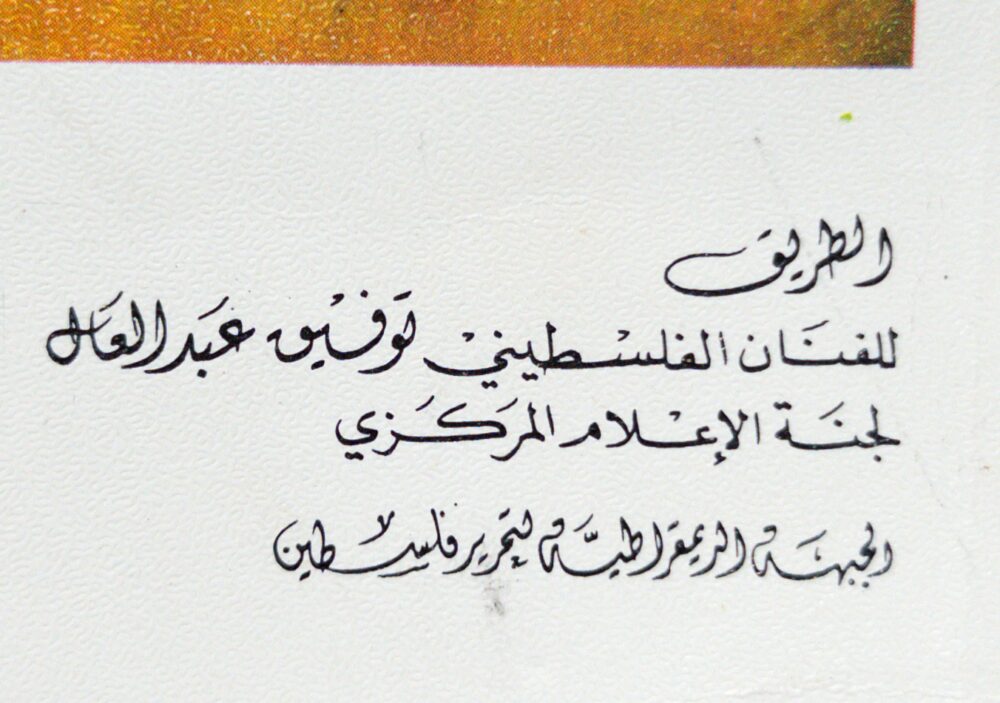 الطريق
للفنَان الفلسْطينيْ تَوفيْق عبَد العَال
لجنَة الإعْلام المرَكَزي
الجبهَة الديمقراطيَّة لتحرير فلسطين